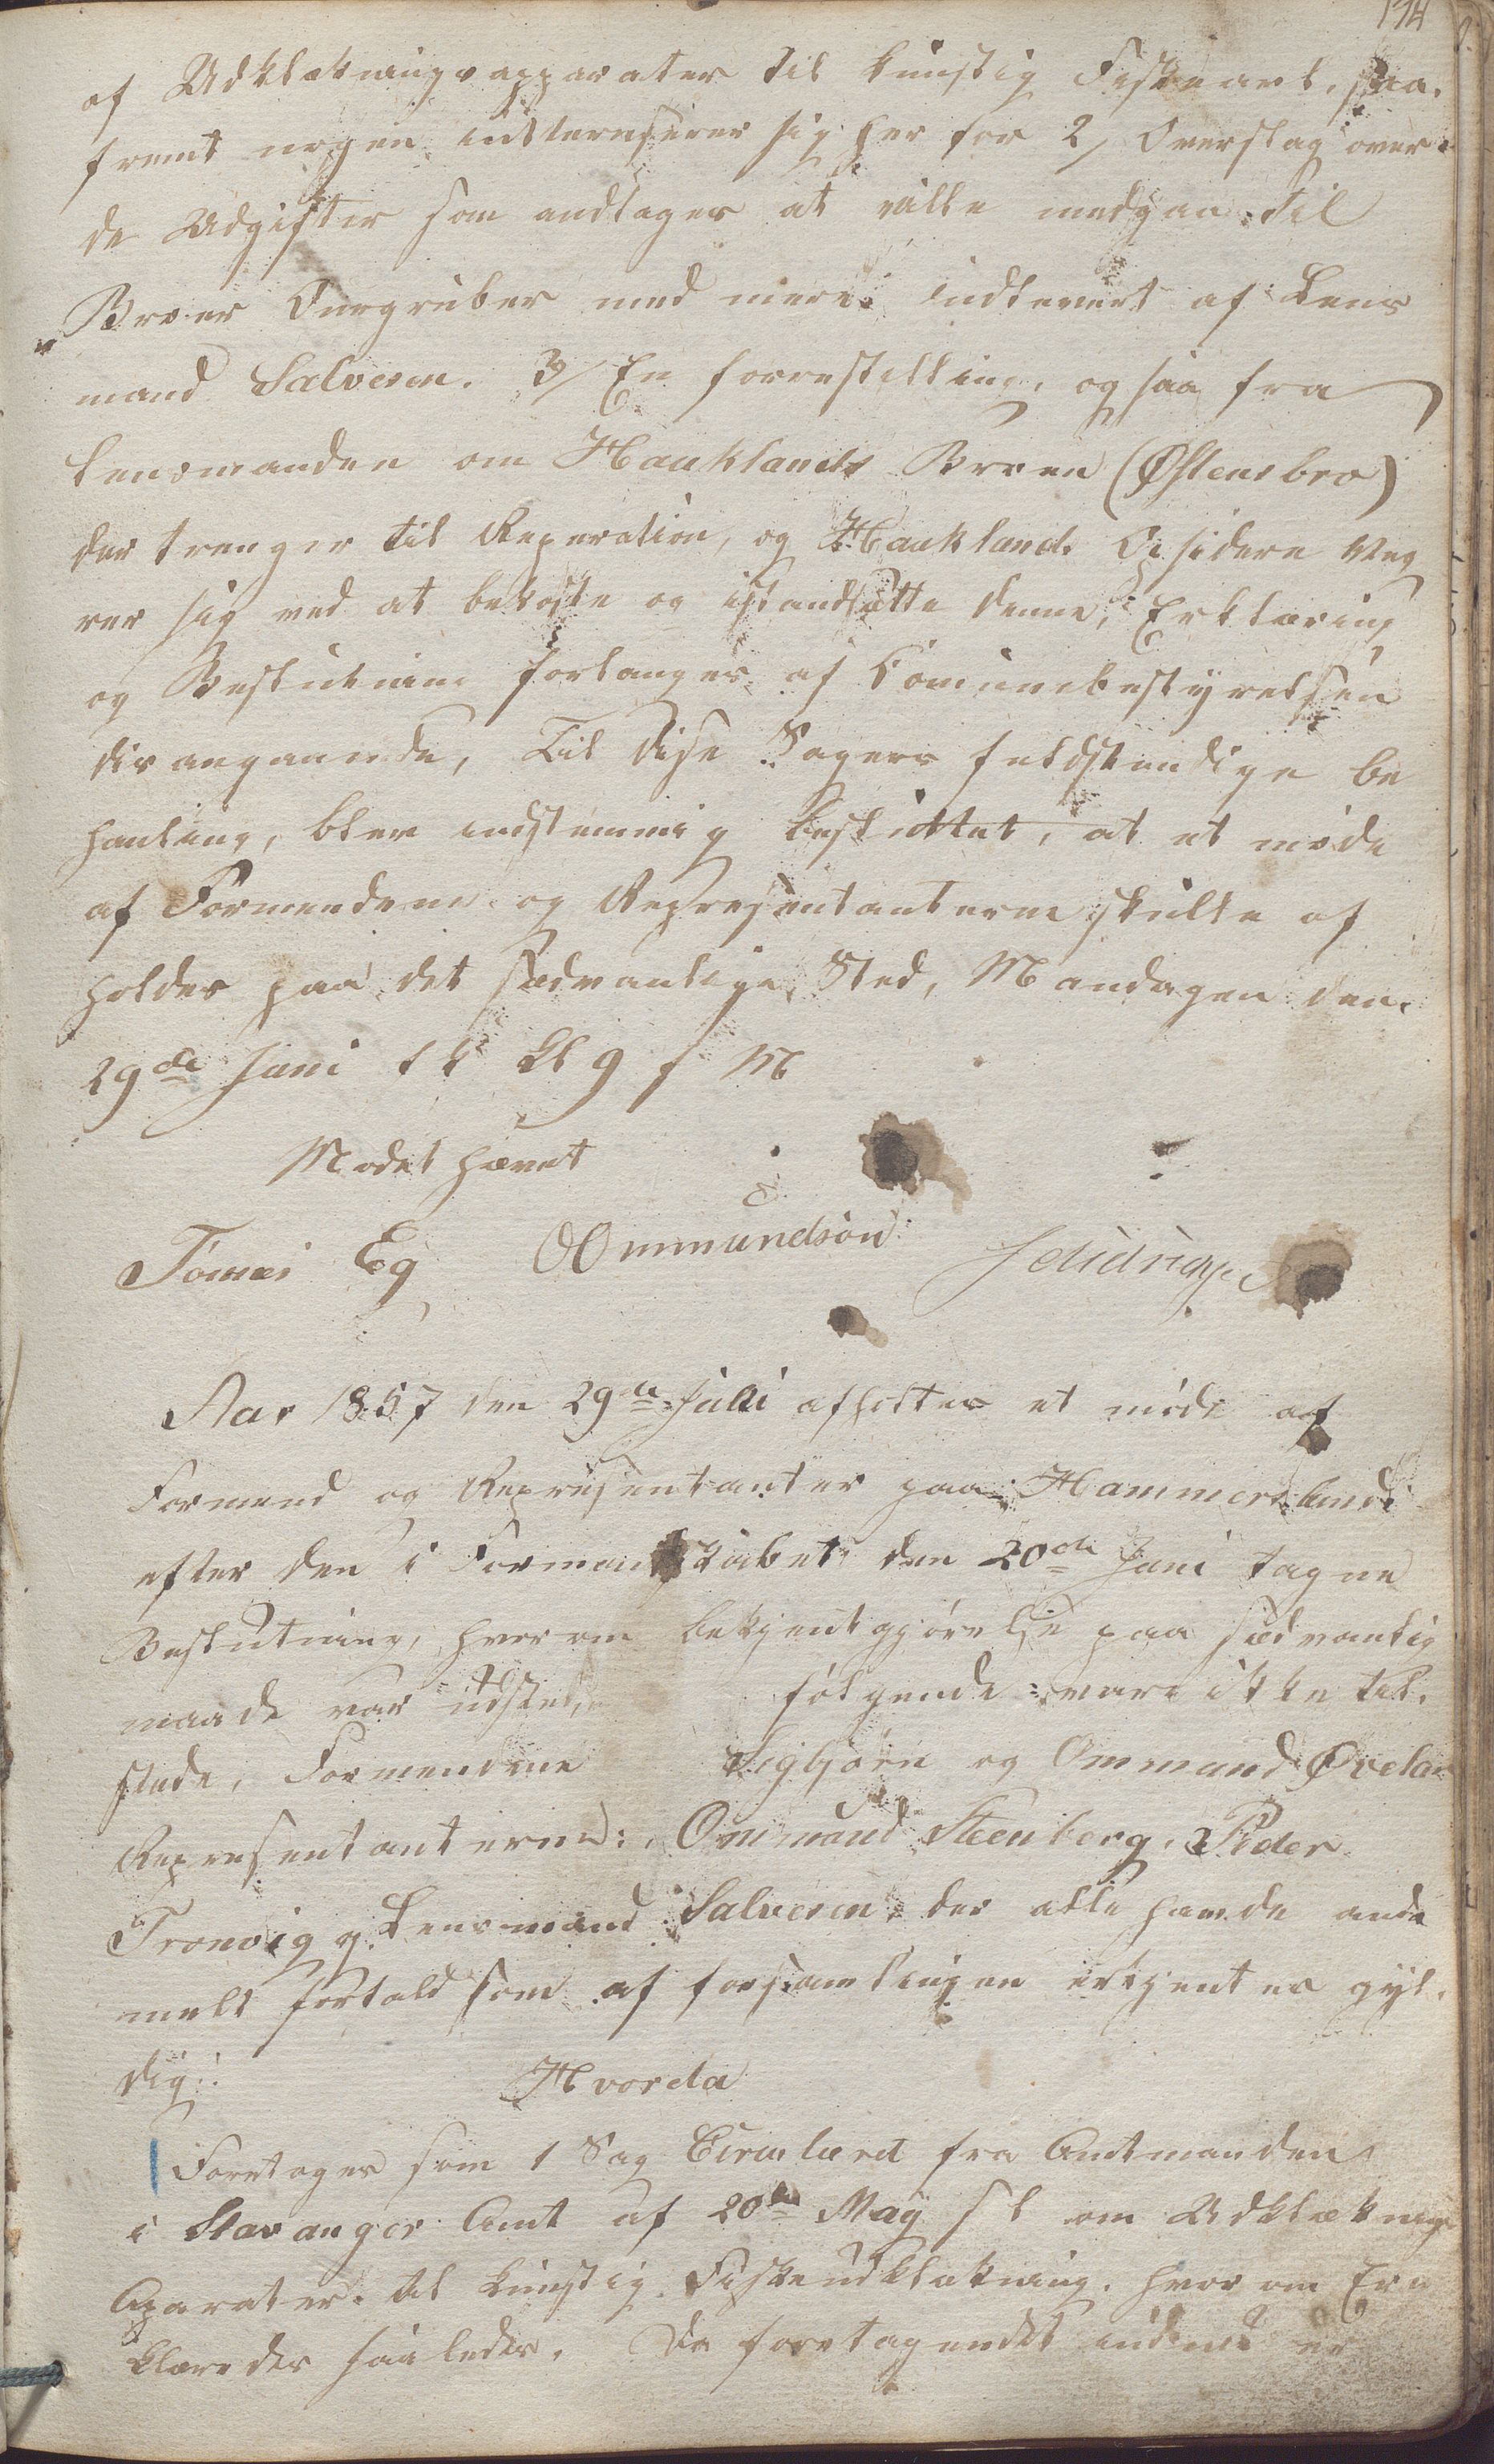 174
af Udklækningsapparater til kunstig Fiskeart, saa-
fremt nogen intterreserer sig her for 2/ Overslag over
de Udgifter som andtages at ville medgaa til
Broer Durgruber med mere indlevert af Lens
mand Salvesen. 3/ En forrestilling, ogsaa fra
Lensmanden om Hauklands Broen (Østensbro)
der trenger til Reperation, og Hauklands Opsidere veg
rer sig ved at bekoste og istandsætte denne, Erklæring
og Beslutning forlanges af Comunebestyrelsen
desangaaende, Til disse Sagers fuldstændige be
hanling, blev indstemmig besluttet, at et møde
af Formendene og Representanterne skulle af
holdes paa det sædvanlige Sted, Mandagen den
29de Juni Kl 9 f M
Mødet hævet
Tomas Eg OOmmundsøn
Aar 1857 den 29de Juli afholtes et møde af
Formend og Representanter paa Hammersland
efter den i Formandskabet den 20de Juni tagne
Beslutning, hvorom bekjentgjørelse paa sædvanlig
maade var udsted, følgende vare ikke til-
stede, Formendene Sigbjørn og Ommund Øvelan
Representanterne: Ommund Steenberg, Peder
Tronvig og Lensmand Salvesen, der alle havde ande
melt forfald som af forsamlingen erkjentes gyl-
dig:
Hvorda
Foretoges som 1 Sag Cirkulæret fra Amtmanden
i Stavanger Amt af 20de May s l om Udklæknings
Aparater til kunstig Fiskeudklækning. hvorom Er
klæredes saaledes. Da foretagendet endnu er